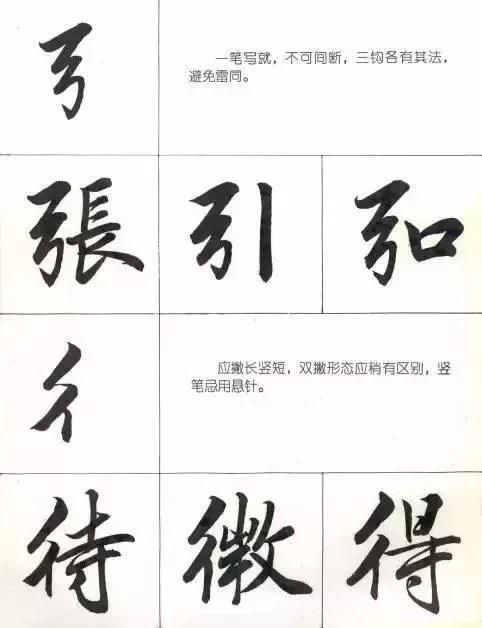 弓
一笔写就，不可间断，三钩各有其法，
避免雷同。
張 引 弘
彳
应撇长竖短，双撇形态应稍有区别，竖
笔忌用悬针。
待 微 得